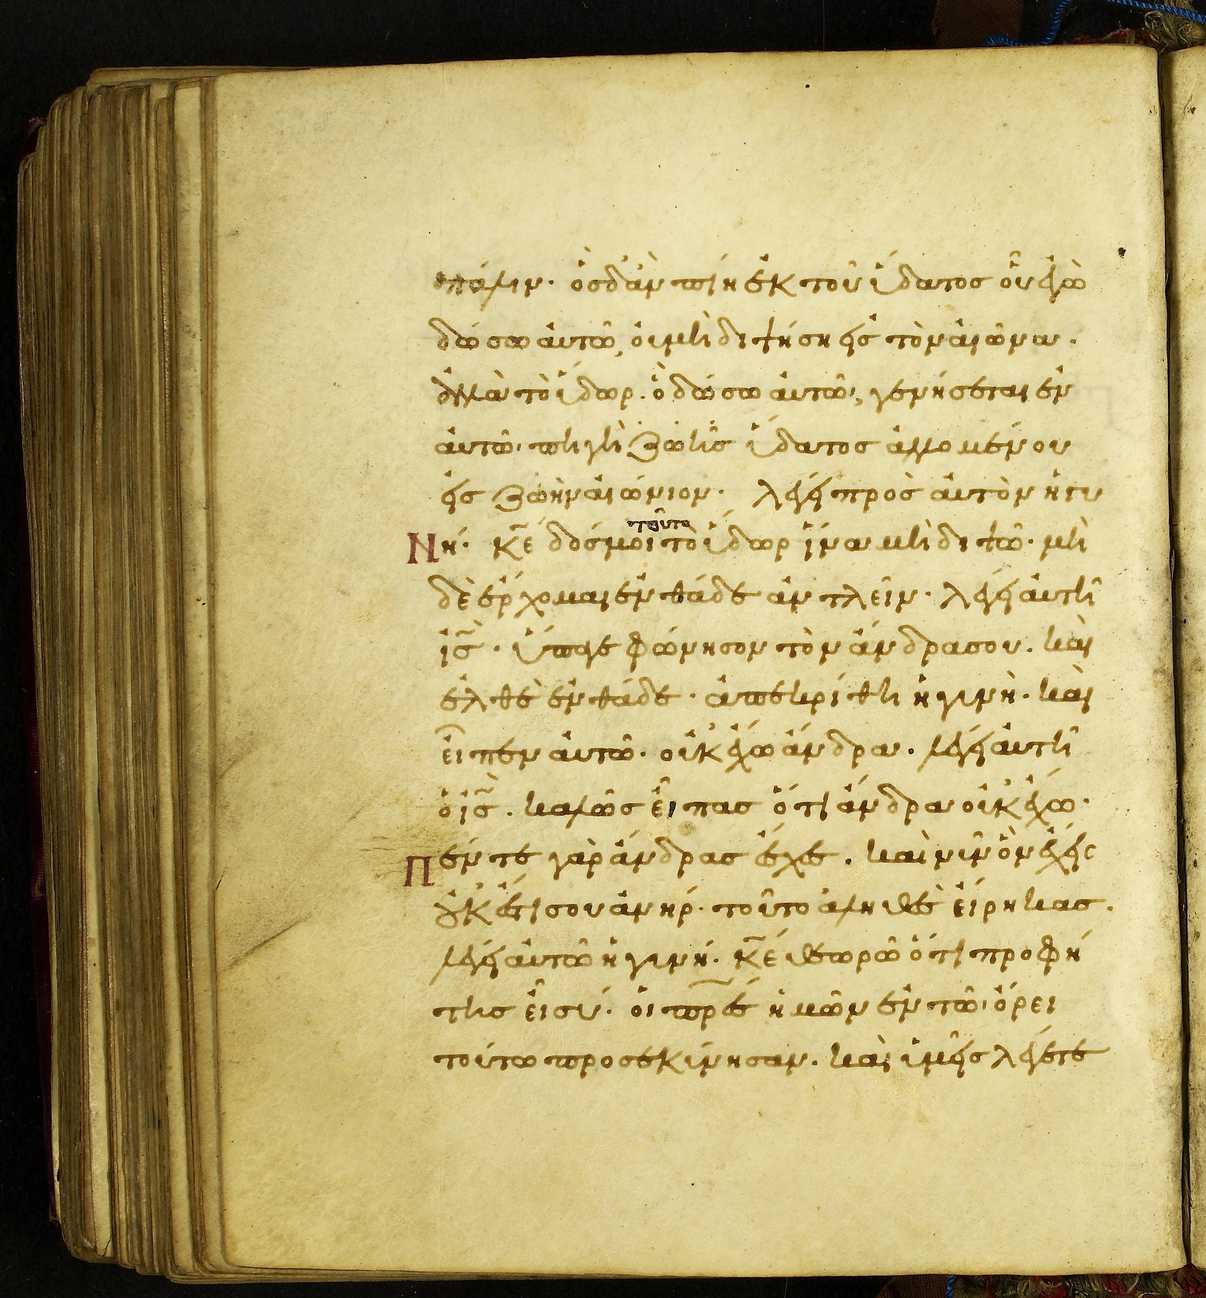 πάλιν· ὃς δ' ἂν πίη ἐκ τοῦ ὕδατος οὗ ἐγὼ
δώσω αὐτῶ, οὐ μὴ διψήση εἰς τὸν αἰῶνα.
ἀλλὰ τὸ ὕδωρ. ὃ δώσω αὐτῶ, γενήσεται ἐν
αὐτῶ· πηγὴ ζωῆς ὕδατος ἁλλομένου
εἰς ζωὴν αἰώνιον. λέγει πρὸς αὐτὸν ἡ γυ
νή· κ̅ε̅ δόσμοι τοῦτο τὸ ὕδωρ ἵνα μὴ διψῶ· μὴ
δὲ ἔρχομαι ἐνθάδε ἀντλεῖν· λέγει αὐτῆ
ὁ ι̅ς̅· ὕπαγε φώνησον τὸν ἄνδρα σου. καὶ
ἐλθὲ ἐνθάδε· ἀπεκρίθη ἡ γυνὴ· καὶ
εἶπεν αὐτῶ· οὐκ ἔχω ἄνδρα. λέγει αὐτῆ
ὁ ι̅ς̅. καλῶς εἶπας ὅτι ἄνδρα οὐκ ἔχω·
πέντε γὰρ ἄνδρας ἔσχες. καὶ νῦν ὃν ἔχεις
οὐκ ἔστι σου ἀνήρ· τοῦτο ἀληθὲς εἴρηκας.
λέγει αὐτῶ ἡ γυνή· κ̅ε̅ θεωρῶ ὅτι προφή
της εἶ σύ· οἱ π̅ρ̅ε̅ς̅ ἡμῶν ἐν τῶ ὄρει
τούτω προσεκύνησαν. καὶ ὑμεῖς λέγετε